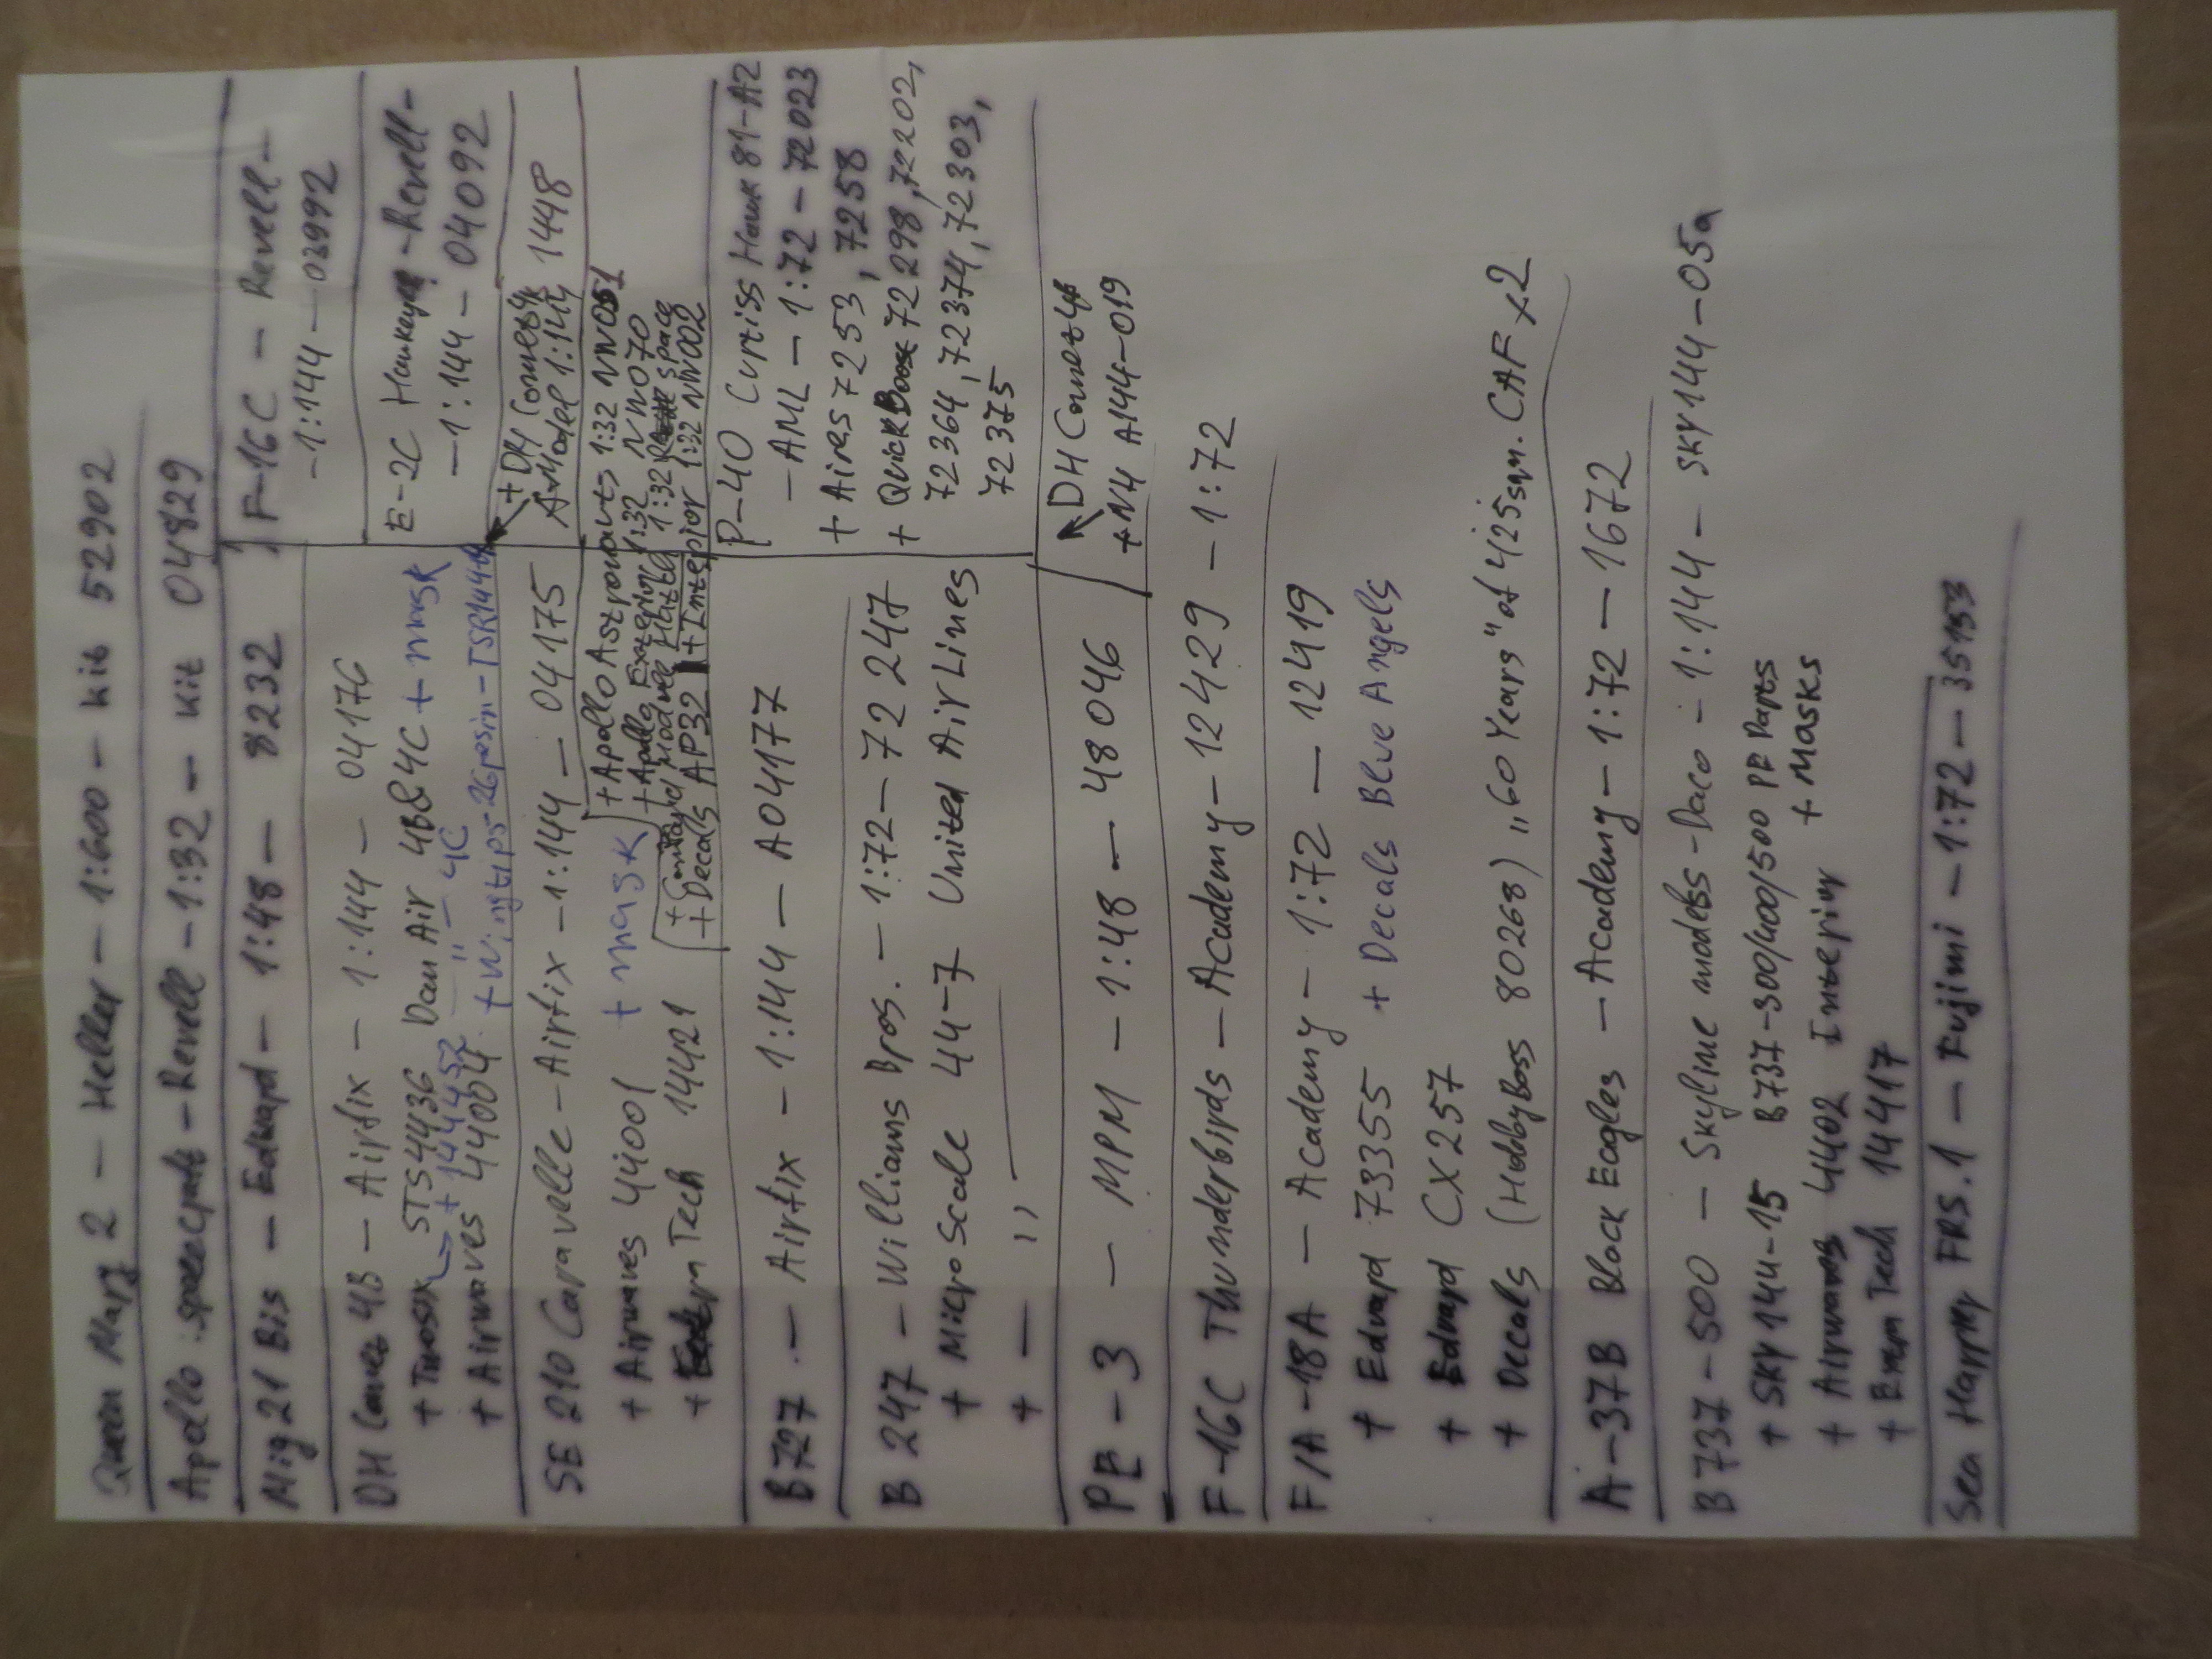 Queen Mary 2 - Heller - 1:600 - kit 52902
Apollo spacecraft - Revell - 1:32 - kit 04829
Mig 21 Bis - Eduard - 1:48 - 8232
F-16C - Revell -
- 1:144 - 03992
DH Comet 4B - Airfix - 1:144 - 04176
+ STS44136 Dan Air 4B&4C + mask
+ 144457 - 11 - 4C
+ Airwaves 44004 + Wingtips - 26 resin - TSR144
E-2C Hawkeye - Revell -
- 1:144 - 04092
+ DH Comet 4
A Model 1:144 1448
SE 210 Caravelle - Airfix - 1:144 - 04175
+ Airwaves 44001 + mask
+ Extra Tech 14421
+ Apollo Astronauts 1:32 NW051
+ Apollo Exterior 1:32 NW070
+ Command Module Hatch 1:32 space
+ Decals AP32 + Interior 1:32 NW002
B727 - Airfix - 1:144 - A04177
B 247 - Willians Bros. - 1:72 - 72 247
+ MicroScale 44-7 United AirLines
+ - ,, -
P-40 Curtiss Hawk 81-A2
- AML - 1:72 - 72023
+ Aires 7253, 7258
+ QuickBoost 72298, 72202,
72364, 72374, 72303,
72375
PE - 3 - MPM - 1:48 - 48046
DH Comet 4B
+ N4 A144-019
F-16C Thunderbirds - Academy - 12429 - 1:72
F/A-18A - Academy - 1:72 - 12419
+ Eduard 73355 + Decals Blue Angels
+ Eduard CX257
+ Decals (HobbyBoss 80268) „60 Years" of 425 sqn. CAF x2
A-37B Black Eagles - Academy - 1:72 - 1672
B737-500 - Skyline models - Daco - 1:144 - SKY144-05a
+ SKY144-15 B737-300/400/500 PE Parts
+ Airwaves 4402 Interior + Masks
+ Extra Tech 14417
Sea Harrier FRS.1 - Fujimi - 1:72 - 35153